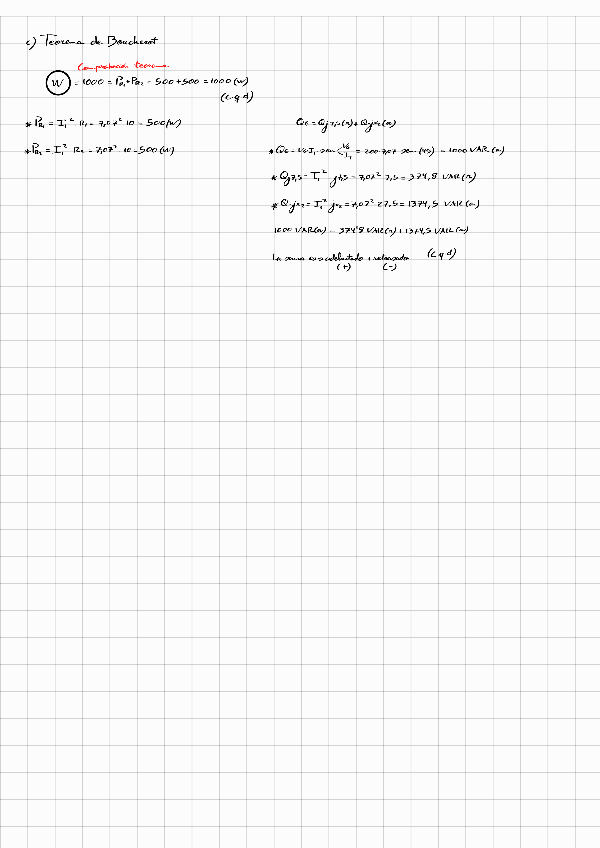 c) Teorema de Boucherot
Comprobación teorema.
W = 1000 = PR1 + PR2 = 500 + 500 = 1000 (W)
(c.q.d)
* PR1 = I1² · R1 = 7,07² · 10 = 500 (W)
* PR2 = I1² · R2 = 7,07² · 10 = 500 (W)
QG = Qj7,5 (a) + Qjx2 (a)
* QG = VG · I1 · sen = 200 · 7,07 · sen (45) = 1000 VAR (a)
* Qj7,5 = I1² · j7,5 = 7,07² · 7,5 = 374,8 VAR (r)
* Qjx2 = I1² · jx2 = 7,07² · 27,5 = 1374,5 VAR (a)
1000 VAR (a) = 374'8 VAR (r) + 1374,5 VAR (a)
La suma es adelantado y retrasado (c.q.d)
(+) (-)